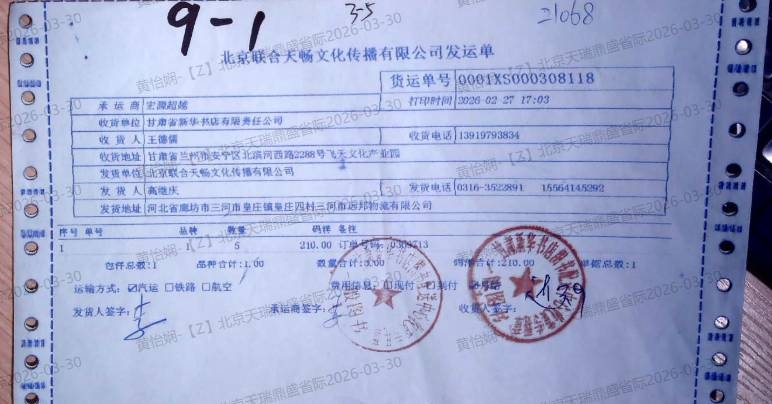 9-1
3-5
21068
北京联合天畅文化传播有限公司发运单
货运单号 0001XS000308118
承运商 宏源超越 打印时间 2026-02-27 17:03
收货单位 甘肃省新华书店有限责任公司
收货人 王德儒 收货电话 13919793834
收货地址 甘肃省兰州市安宁区北滨河西路2288号飞天文化产业园
发货单位 北京联合天畅文化传播有限公司
发货人 高继庆 发货电话 0316-3522891 15564145292
发货地址 河北省廊坊市三河市皇庄镇皇庄四村三河市远邦物流有限公司
序号 单号 品种 数量 码洋 备注
1 5 210.00 订单号码: 0303713
包件总数:1 品种合计:1.00 数量合计:5.00 码洋合计:210.00 单据总数:1
运输方式: ☑汽运 □铁路 □航空 费用信息: □现付 □到付
发货人签字: 承运商签字: 收货人签字:
黄怡娴-【Z】北京天瑞鼎盛省际2026-03-30